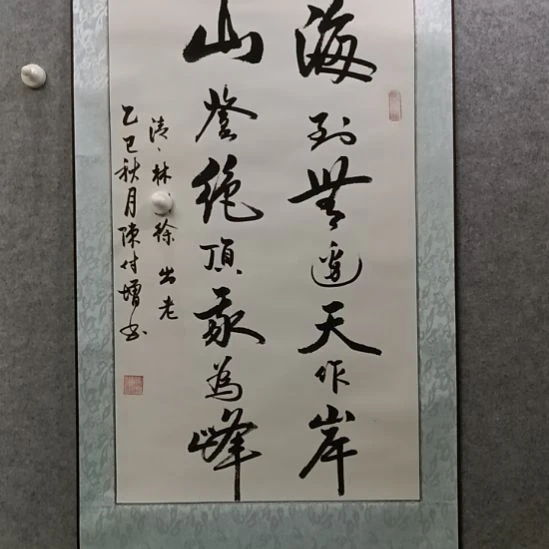 海到無邊天作岸
山登絕頂我為峰
清、林 徐 出老
乙巳秋月陳付增书